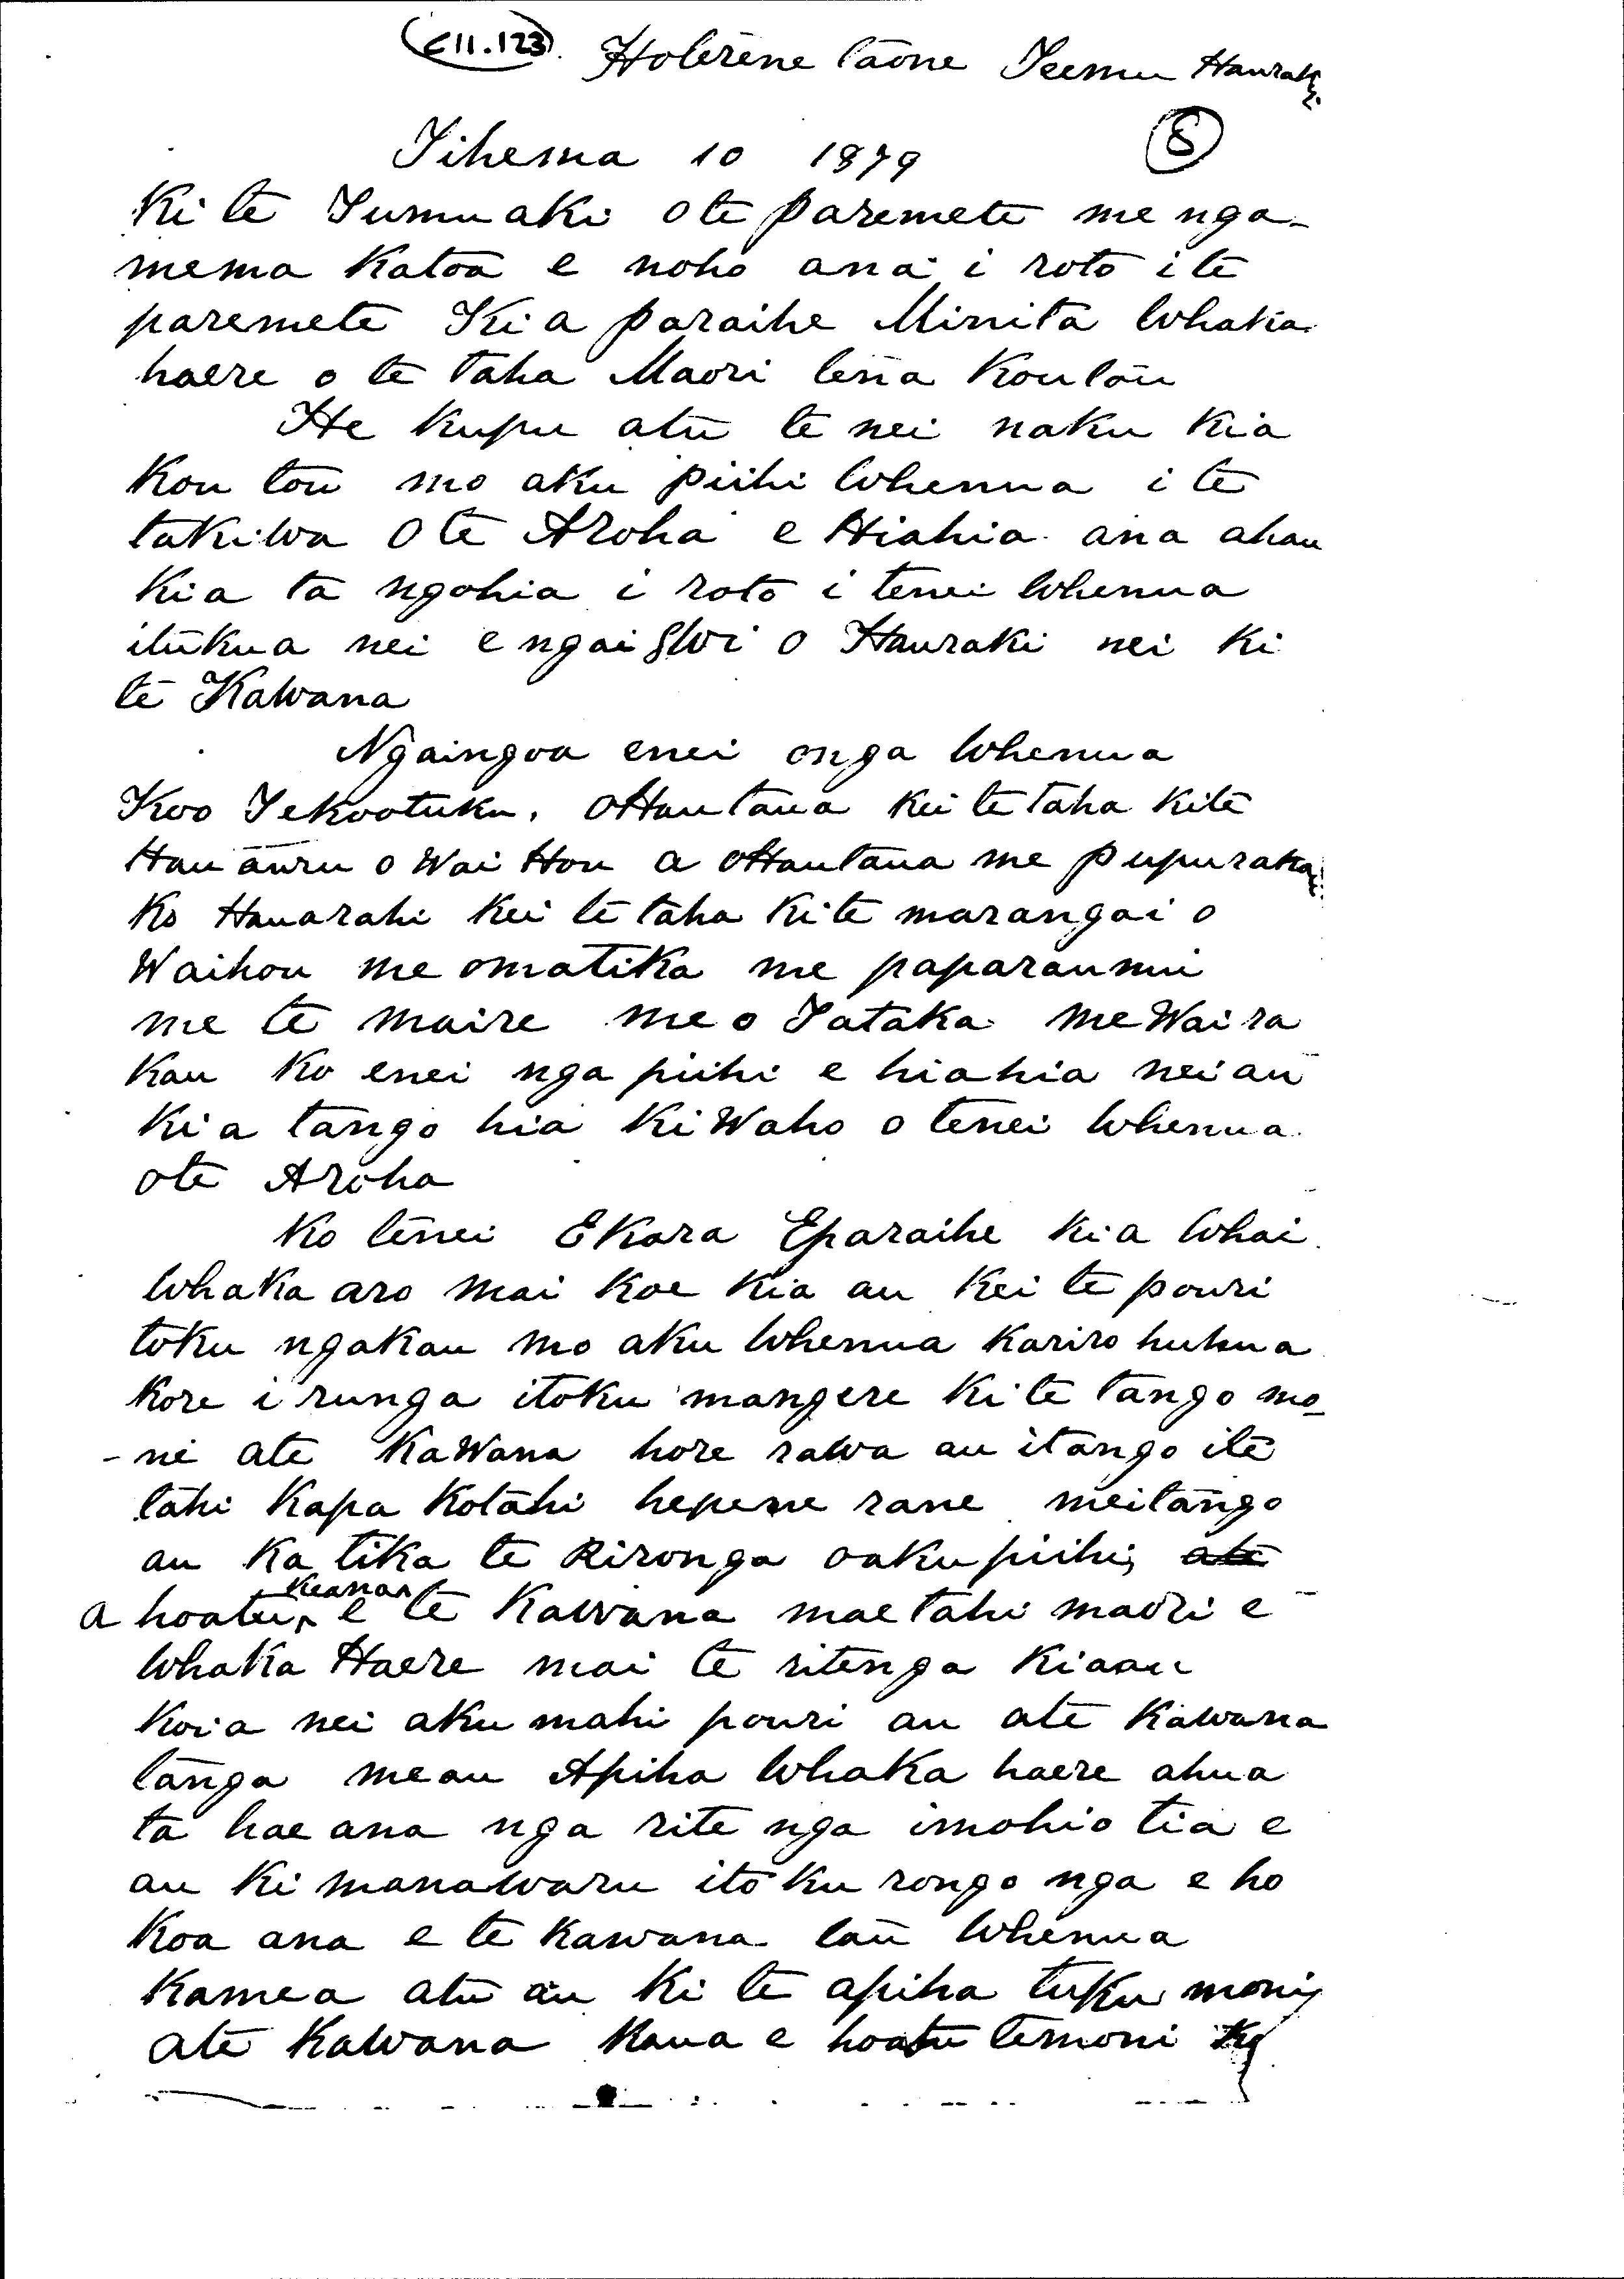 E11.123. Hoterene taone Teemu Hauraki
Tihema 10 1879
8
Ki te Tumuaki ote paremete me nga-
mema Katoa e noho ana i roto i te
paremete Ki a paraihe Minita Whaka
haere o te taha Maori tena Koutou
He kupu atu te nei naku kia
Kou tou mo aku piihi Whenua i te
takiwa Ote Aroha e Hiahia ana ahau
Kia ta ngohia i roto i tenei Whenua
itukua nei e ngai Iwi o Hauraki nei ki
te Kawana
Ngaingoa enei onga Whenua
Koo Tekootuku. oHautaua Kei te taha Kite
Hauauru o Wai Hou a oHautaua me pupurakai
Ko Hauarahi Kei te taha Kite marangai o
Waihou me omatika me paparaumu
me te maire me o Tataka me Waira
Kau Ko enei nga piihi e hiahia nei au
Ki a tango hia Ki Waho o tenei Whenua
ote Aroha
Ko tenei EKara Eparaihe Kia Whai
Whaka aro mai Koe Kia au Kei te pouri
toku ngakau mo aku Whenua Kariro huhua
Kore i runga itoku mangere Ki te tango mo-
-ni ate KaWana hore rawa au itango ite
tahi Kapa Kotahi hepene rane meitango
au Ka tika te Rironga oaku piihi, ate
a hoatu Keanaa e te Kawana maetahi maori e
Whaka Haere mai te ritenga Kiaau
Koia nei aku mahi pouri au ate Kawana
tanga meau Apiha Whaka haere ahua
ta hae ana nga rite nga imohio tia e
au Ki manawaru itoku rongo nga e ho
Koa ana e te Kawana taū Whenua
Kamea atu au Ki te apiha tuku moni
ate Kawana Kaua e hoatu temoni